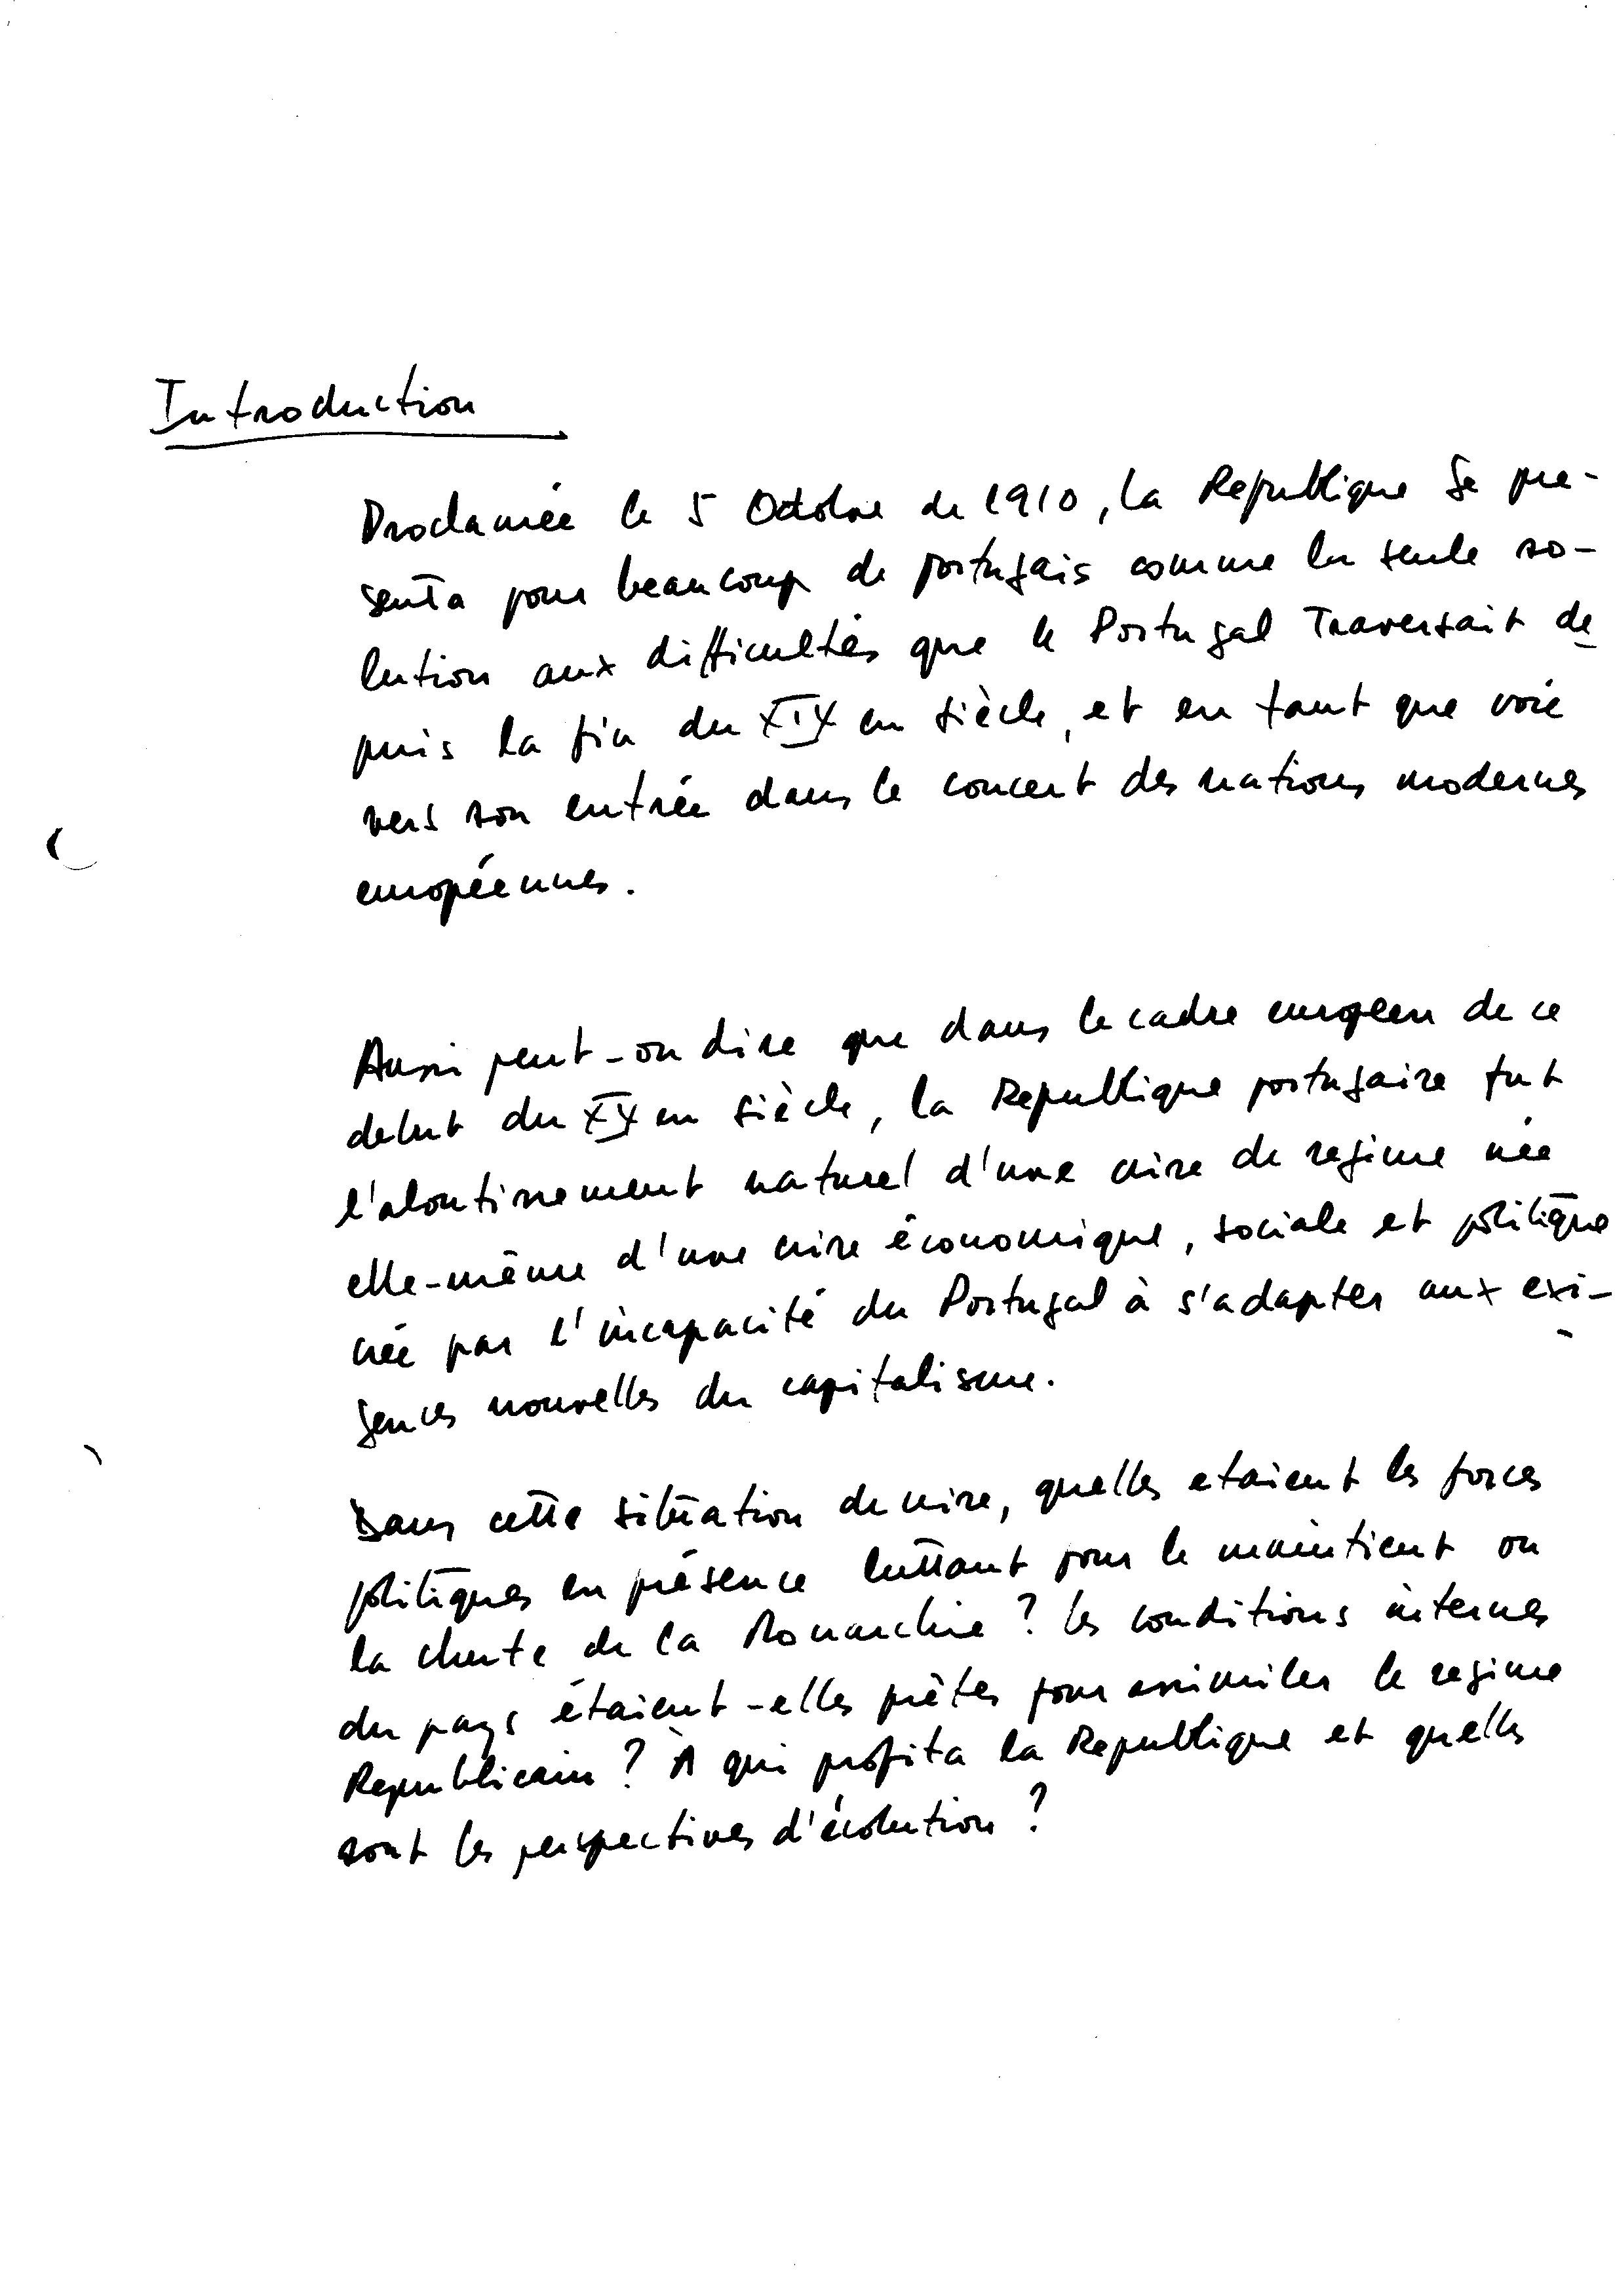 Introduction
Proclamée le 5 Octobre de 1910, la Republique se pre-
senta pour beaucoup de portugais comme la seule so-
lution aux difficultés que le Portugal traversait de
puis la fin du XIX em siècle, et en tant que voie
vers son entrée dans le concert des nations modernes
européennes.
Aussi peut-on dire que dans le cadre europeen de ce
debut du XX em siècle, la Republique portugaise fut
l'aboutissement naturel d'une crise de regime née
elle-même d'une crise économique, sociale et politique
créé par l'incapacité du Portugal à s'adapter aux exi-
gences nouvelles du capitalisme.
Dans cette situation de crise, quelles etaient les forces
politiques en présence luttant pour le maintient ou
la chute de la Monarchie ? les conditions internes
du pays étaient-elles prêtes pour assimiler le regime
Republicain ? À qui profita la Republique et quelles
sont les perspectives d'évolution ?